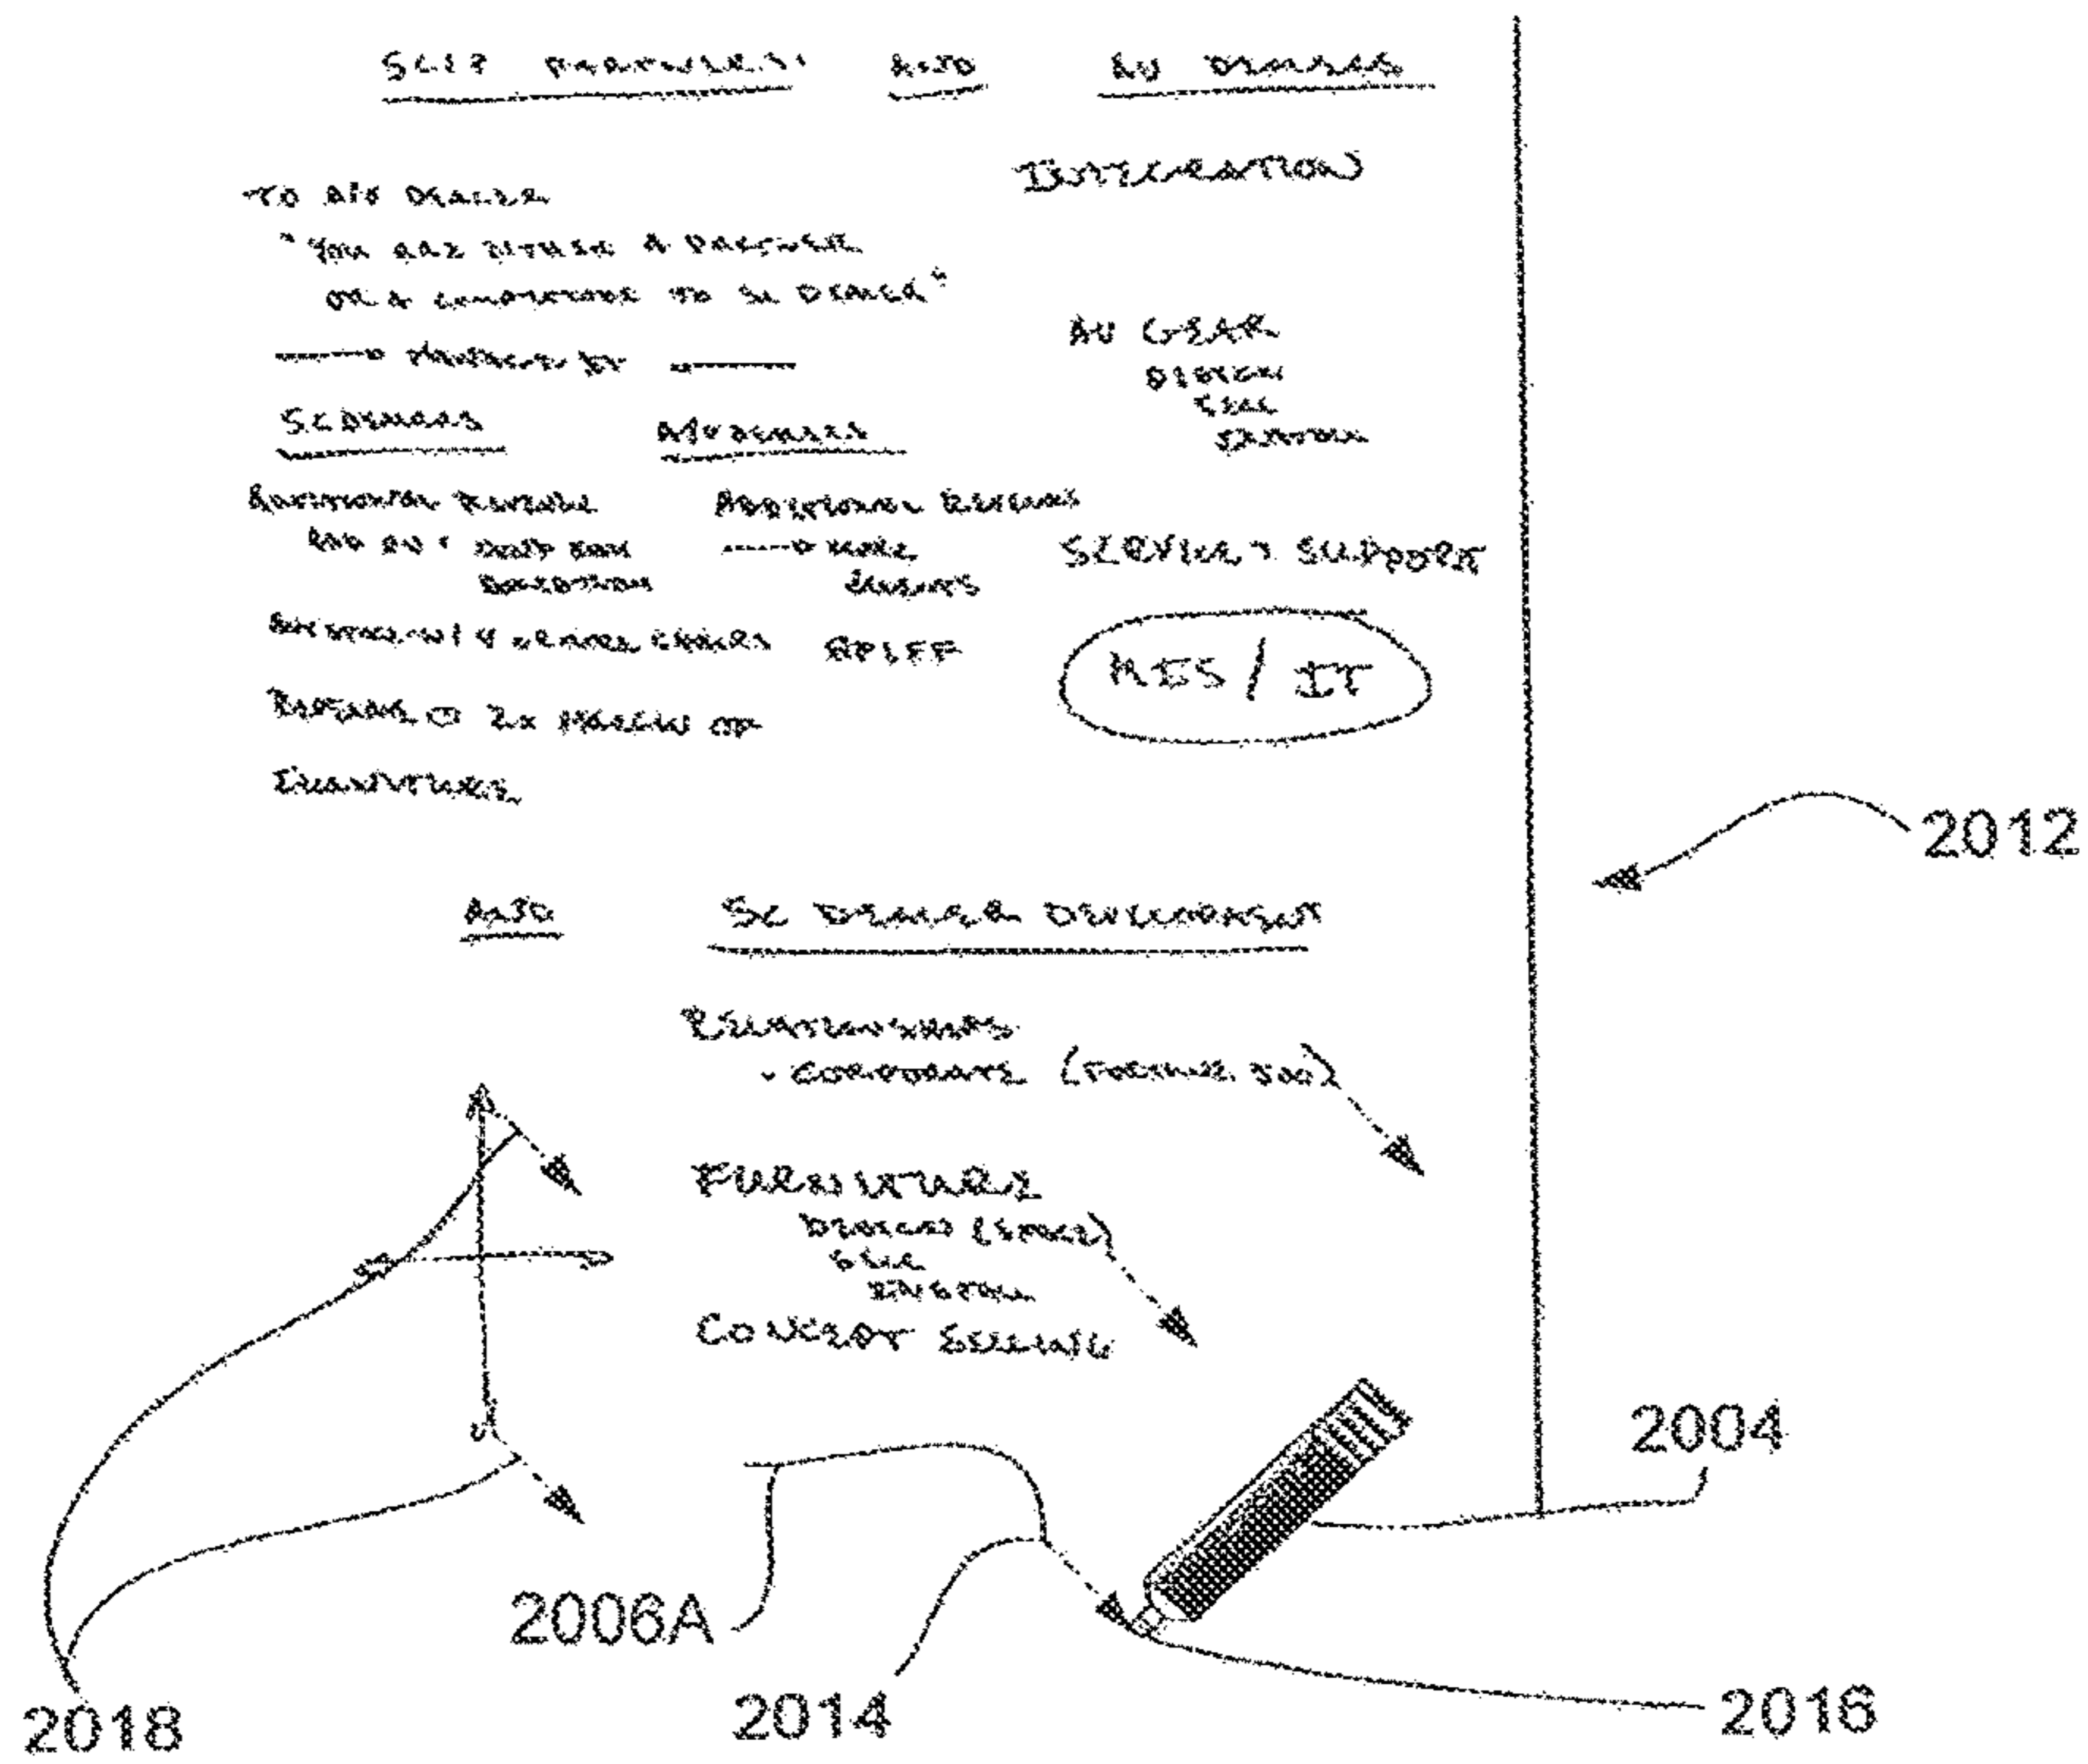 AND AV DEALERS
INTEGRATION
TO A/V DEALER
"YOU ARE EITHER A PARTNER
OR A COMPETITOR TO SC DEALER"
AV GEAR
DESIGN
SELL
INSTALL
SC DEALERS A/V DEALERS
ADDITIONAL REVENUE ADDITIONAL REVENUE
MORE
CLIENTS
SERVICE + SUPPORT
SPIFF
MIS / IT
2X MARGIN OF
FURNITURE
2012
AND SC DEALER DEVELOPMENT
RELATIONSHIPS
- CORPORATE (FORTUNE 500)
FURNITURE
DESIGN (SPACE)
SELL
INSTALL
CONCEPT SELLING
2004
2006A
2018
2014
2016